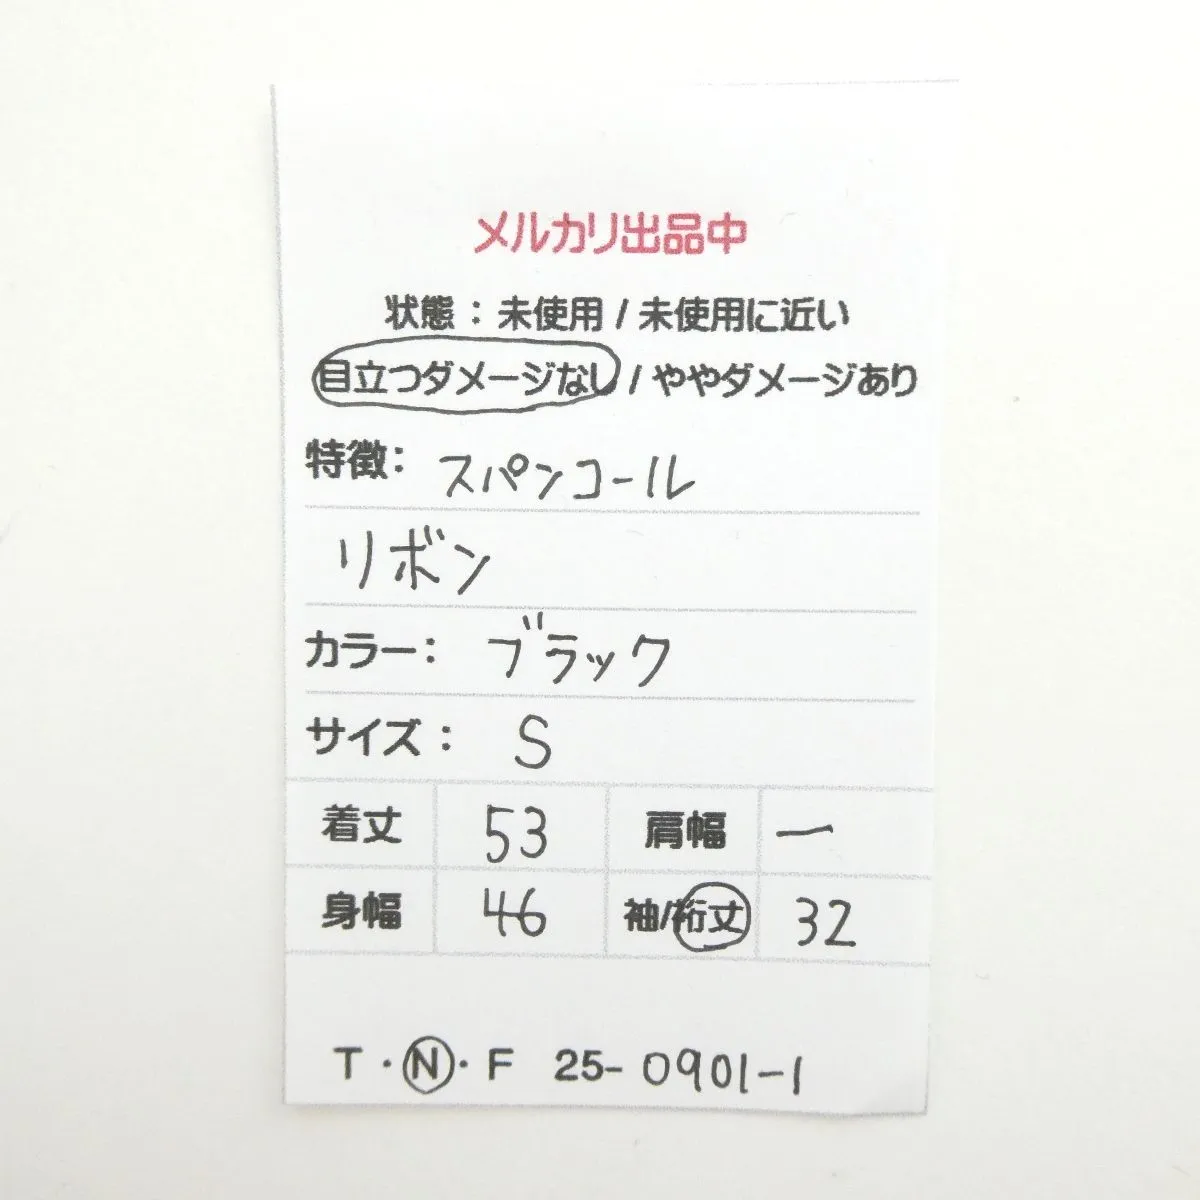 メルカリ出品中
状態：未使用 / 未使用に近い
目立つダメージなし / ややダメージあり
特徴： スパンコール
リボン
カラー： ブラック
サイズ： S
着丈 53 肩幅 ー
身幅 46 袖/裄丈 32
T・N・F 25-0901-1